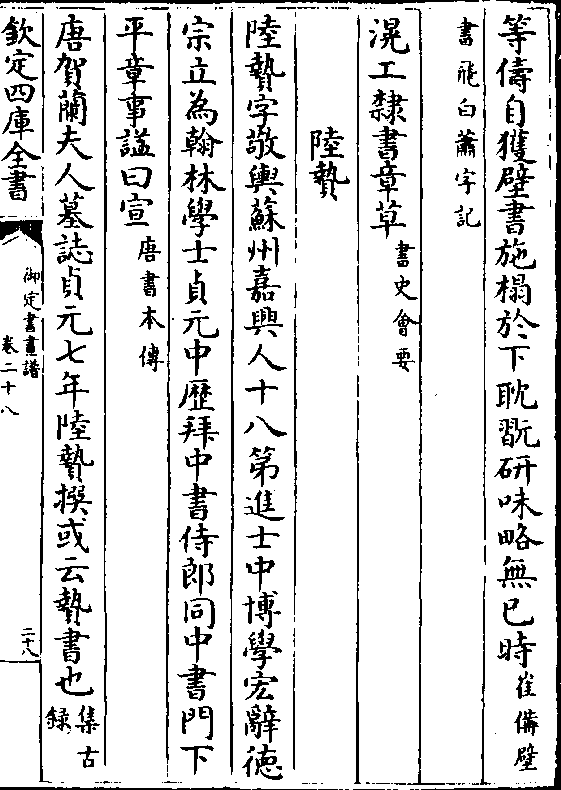 等儔自獲壁書施榻於下耽翫研味略無已時崔備壁
書飛白蕭字記
滉工隸書章草書史會要
陸贄
陸贄字敬輿蘇州嘉興人十八第進士中博學宏辭德
宗立為翰林學士貞元中歴拜中書侍郎同中書門下
平章事諡曰宣唐書本傳
唐賀蘭夫人墓誌貞元七年陸贄撰或云贄書也集古
録
欽定四庫全書
御定書畫譜
卷二十八
二十八